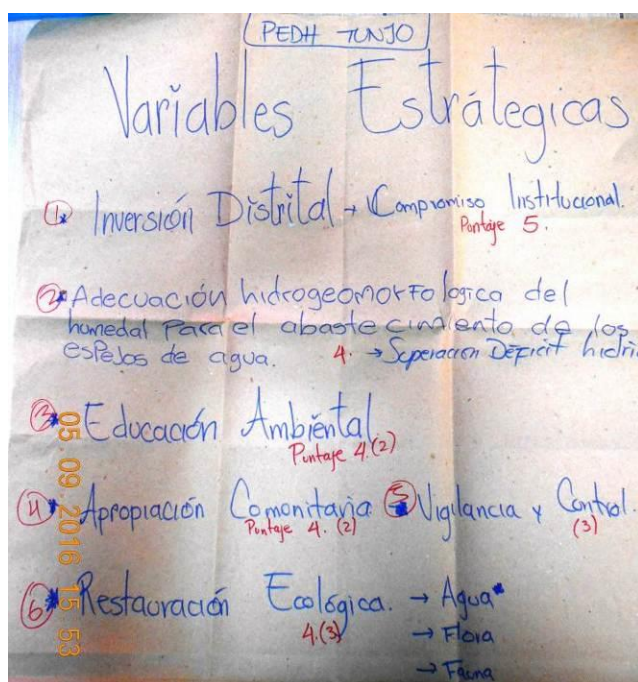 PEDH TUNJO
Variables Estrátegicas
① * Inversión Distrital → Compromiso Institucional.
Puntaje 5.
② * Adecuación hidrogeomorfologica del
humedal Para el abastecimiento de los
espejos de agua. 4. → Superación Déficit
③ * Educación Ambiental
Puntaje 4.(2)
④ * Apropiación Comonitaria ⑤ * Vigilancia y Control.
Puntaje 4. (2) (3)
⑥ * Restauración Ecológica. → Agua*
4.(3) → Flora
→ Fauna
05.09.2016 15 53